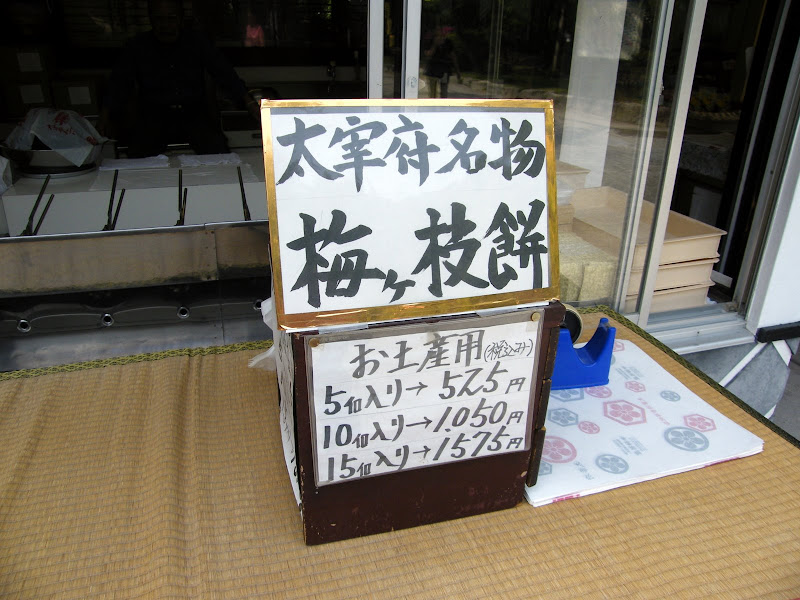 太宰府名物
梅ヶ枝餅
お土産用(税込み)
5個入り→525円
10個入り→1.050円
15個入り→1575円